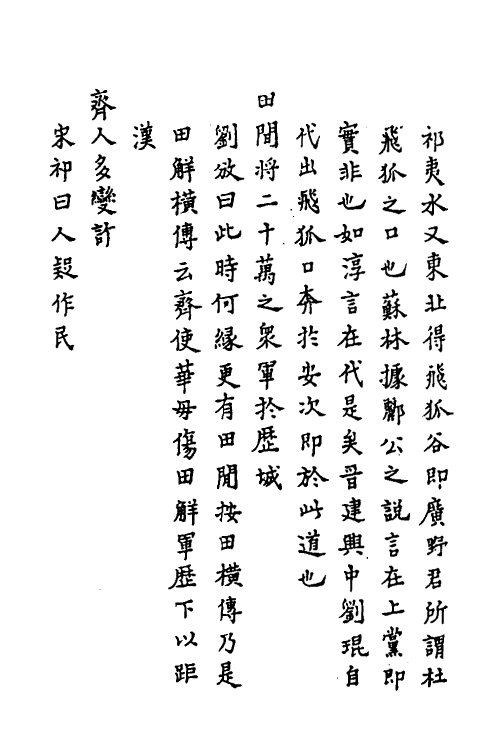 祁夷水又東北得飛狐谷即廣野君所謂杜
飛狐之口也蘇林據酈公之說言在上黨即
實非也如淳言在代是矣晉建興中劉琨自
代出飛狐口奔於安次即於此道也
田間將二十萬之衆軍於歷城
劉攽曰此時何縁更有田閒按田橫傳乃是
田解橫傳云齊使華毋傷田解軍歷下以距
漢
齊人多變詐
宋祁曰人疑作民